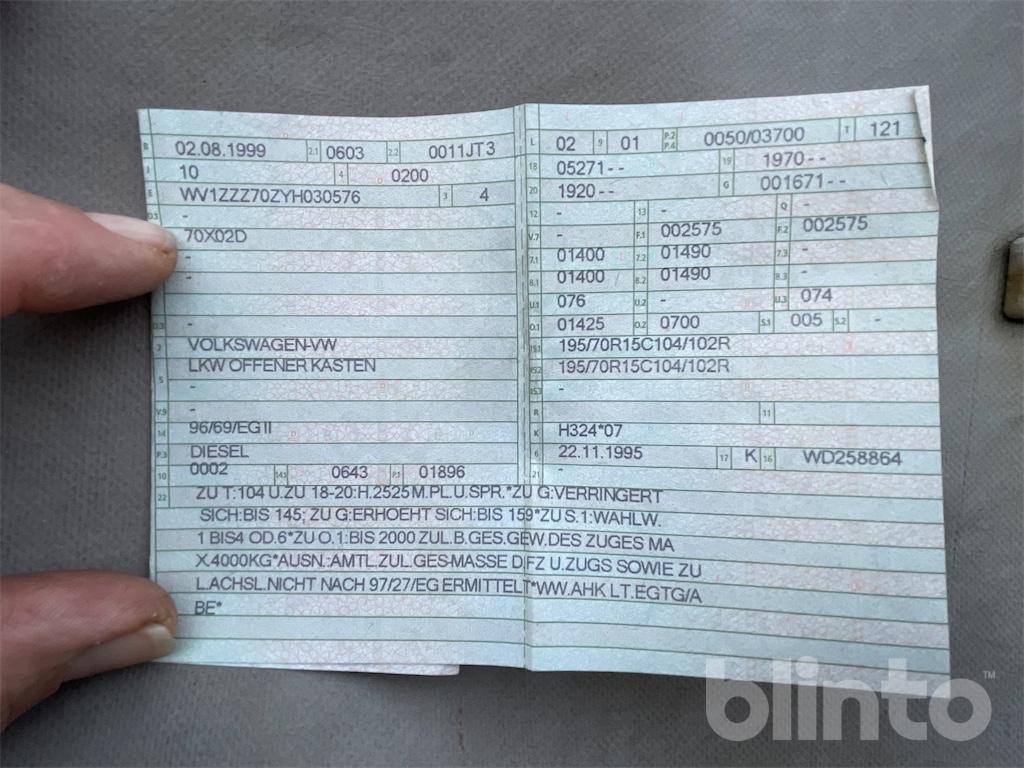 B 02.08.1999 2.1 0603 2.2 0011JT3
J 10 4 0200
E WV1ZZZ70ZYH030576 3 4
D.3 -
70X02D
-
D.3 -
2 VOLKSWAGEN-VW
5 LKW OFFENER KASTEN
-
V.9 -
14 96/69/EG II
P.3 DIESEL
10 0002 14.1 0643 P.1 01896
L 02 9 01 P.2 P.4 0050/03700 T 121
18 05271-- 19 1970--
20 1920-- G 001671--
12 - 13 - Q -
V.7 - F.1 002575 F.2 002575
7.1 01400 7.2 01490 7.3 -
8.1 01400 8.2 01490 8.3 -
U.1 076 U.2 - U.3 074
O.1 01425 O.2 0700 S.1 005 S.2 -
15.1 195/70R15C104/102R
15.2 195/70R15C104/102R
15.3 -
R 11
K H324*07
6 22.11.1995 17 K 16 WD258864
21 -
22 ZU T:104 U.ZU 18-20:H.2525 M.PL.U.SPR.*ZU G:VERRINGERT
SICH:BIS 145; ZU G:ERHOEHT SICH:BIS 159*ZU S.1:WAHLW.
1 BIS4 OD.6*ZU O.1:BIS 2000 ZUL.B.GES.GEW.DES ZUGES MA
X.4000KG*AUSN.:AMTL.ZUL.GES-MASSE D.FZ U.ZUGS SOWIE ZU
L.ACHSL.NICHT NACH 97/27/EG ERMITTELT*WW.AHK LT.EGTG/A
BE*
blinto™